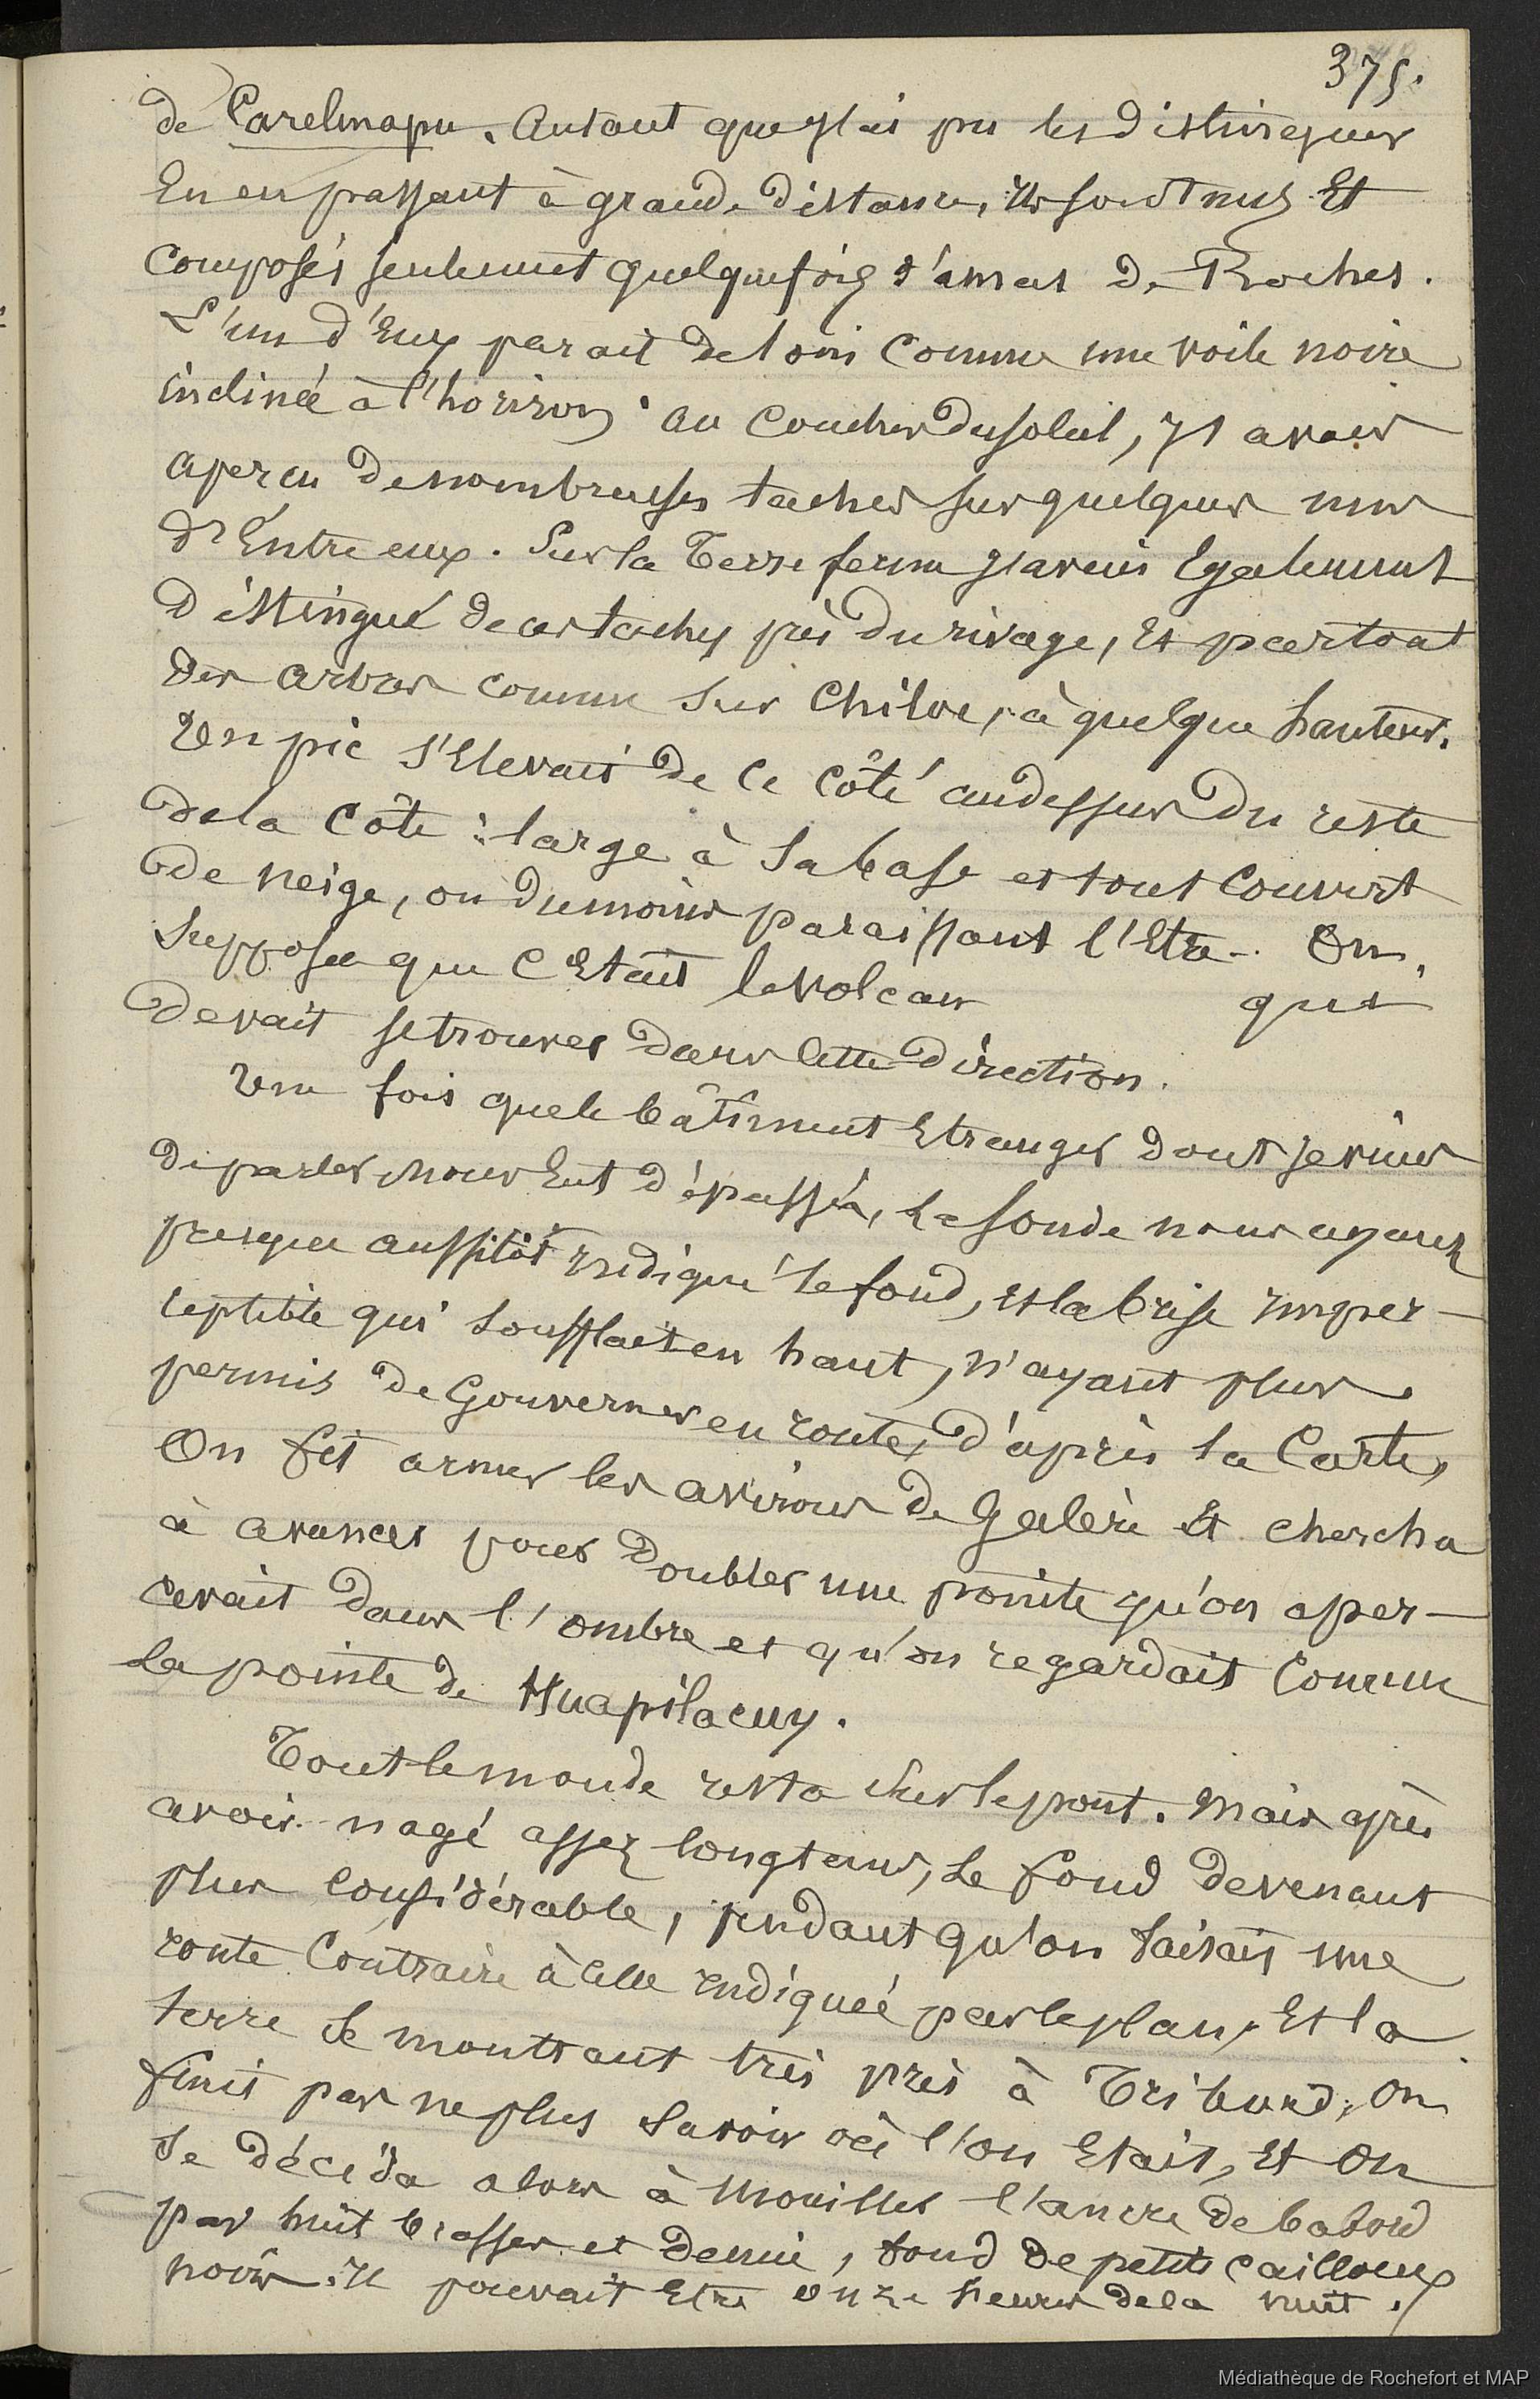 375.
de Carelmapu. Autant que j'ai pu les distinguer
En en passant à grande distance, ils sont nus Et
Composés seulement quelquefois d'amas de Roches.
L'un d'Eux parait de loin Comme une voile noire
inclinée à l'horizon. au Coucher du soleil, j'avais
aperçu de nombreuses taches sur quelques uns
d'Entre eux. Sur la Terre ferme j'avais Egalement
Distingué de ces taches près du rivage, Et partout
des arbres comme sur Chiloe, à quelque hauteur.
Un pic s'Elevait de ce Côté audessus Du reste
de la Côte : large à sa base et tout Couvert
de neige, ou du moins paraissant l'Etre. On
Supposa que C'Etait le volcan qui
Devait se trouver dans cette direction.
Une fois que le bâtiment Etranger dont je viens
de parler nous Eut dépassé, la sonde nous ayant
presque aussitôt indiqué le fond, et la brise imper-
ceptible qui soufflait en haut, n'ayant plus
permis de Gouverner en route, d'après la Carte,
On fit armer les avirons de Galère Et chercha
à avancer pour Doubler une pointe qu'on aper-
cevait dans l'ombre et qu'on regardait Comme
la pointe de Huapilacuy.
Tout le monde resta sur le pont. Mais après
avoir nagé assez longtems, le fond devenant
plus Considérable, pendant qu'on faisait une
route Contraire à celle indiquée par le plan, Et la
terre se montrant très près à Tribord, On
finit par ne plus savoir où l'on Etait, Et On
Se décida alors à Mouiller l'ancre de babord
par huit brasses et demie, fond de petits cailloux
noirs. Il pouvait Etre onze heures de la nuit.
Médiathèque de Rochefort et MAP